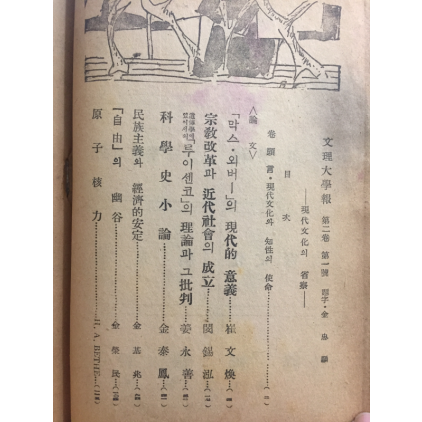 文理大學報 第二卷 第一號 題字·金
──現代文化의 省察──
目次
卷頭言·現代文化와 知性의 使命
〈論文〉
「막스·외버ー」의 現代的 意義 崔文煥
宗敎改革과 近代社會의 成立 閔錫泓
「루이센코」의 理論과 그 批判 姜永善
科學史小論 金泰鳳
民族主義와 經濟的安定 金基兆
「自由」의 幽谷 金榮民
原子核力 H. A. BETHE